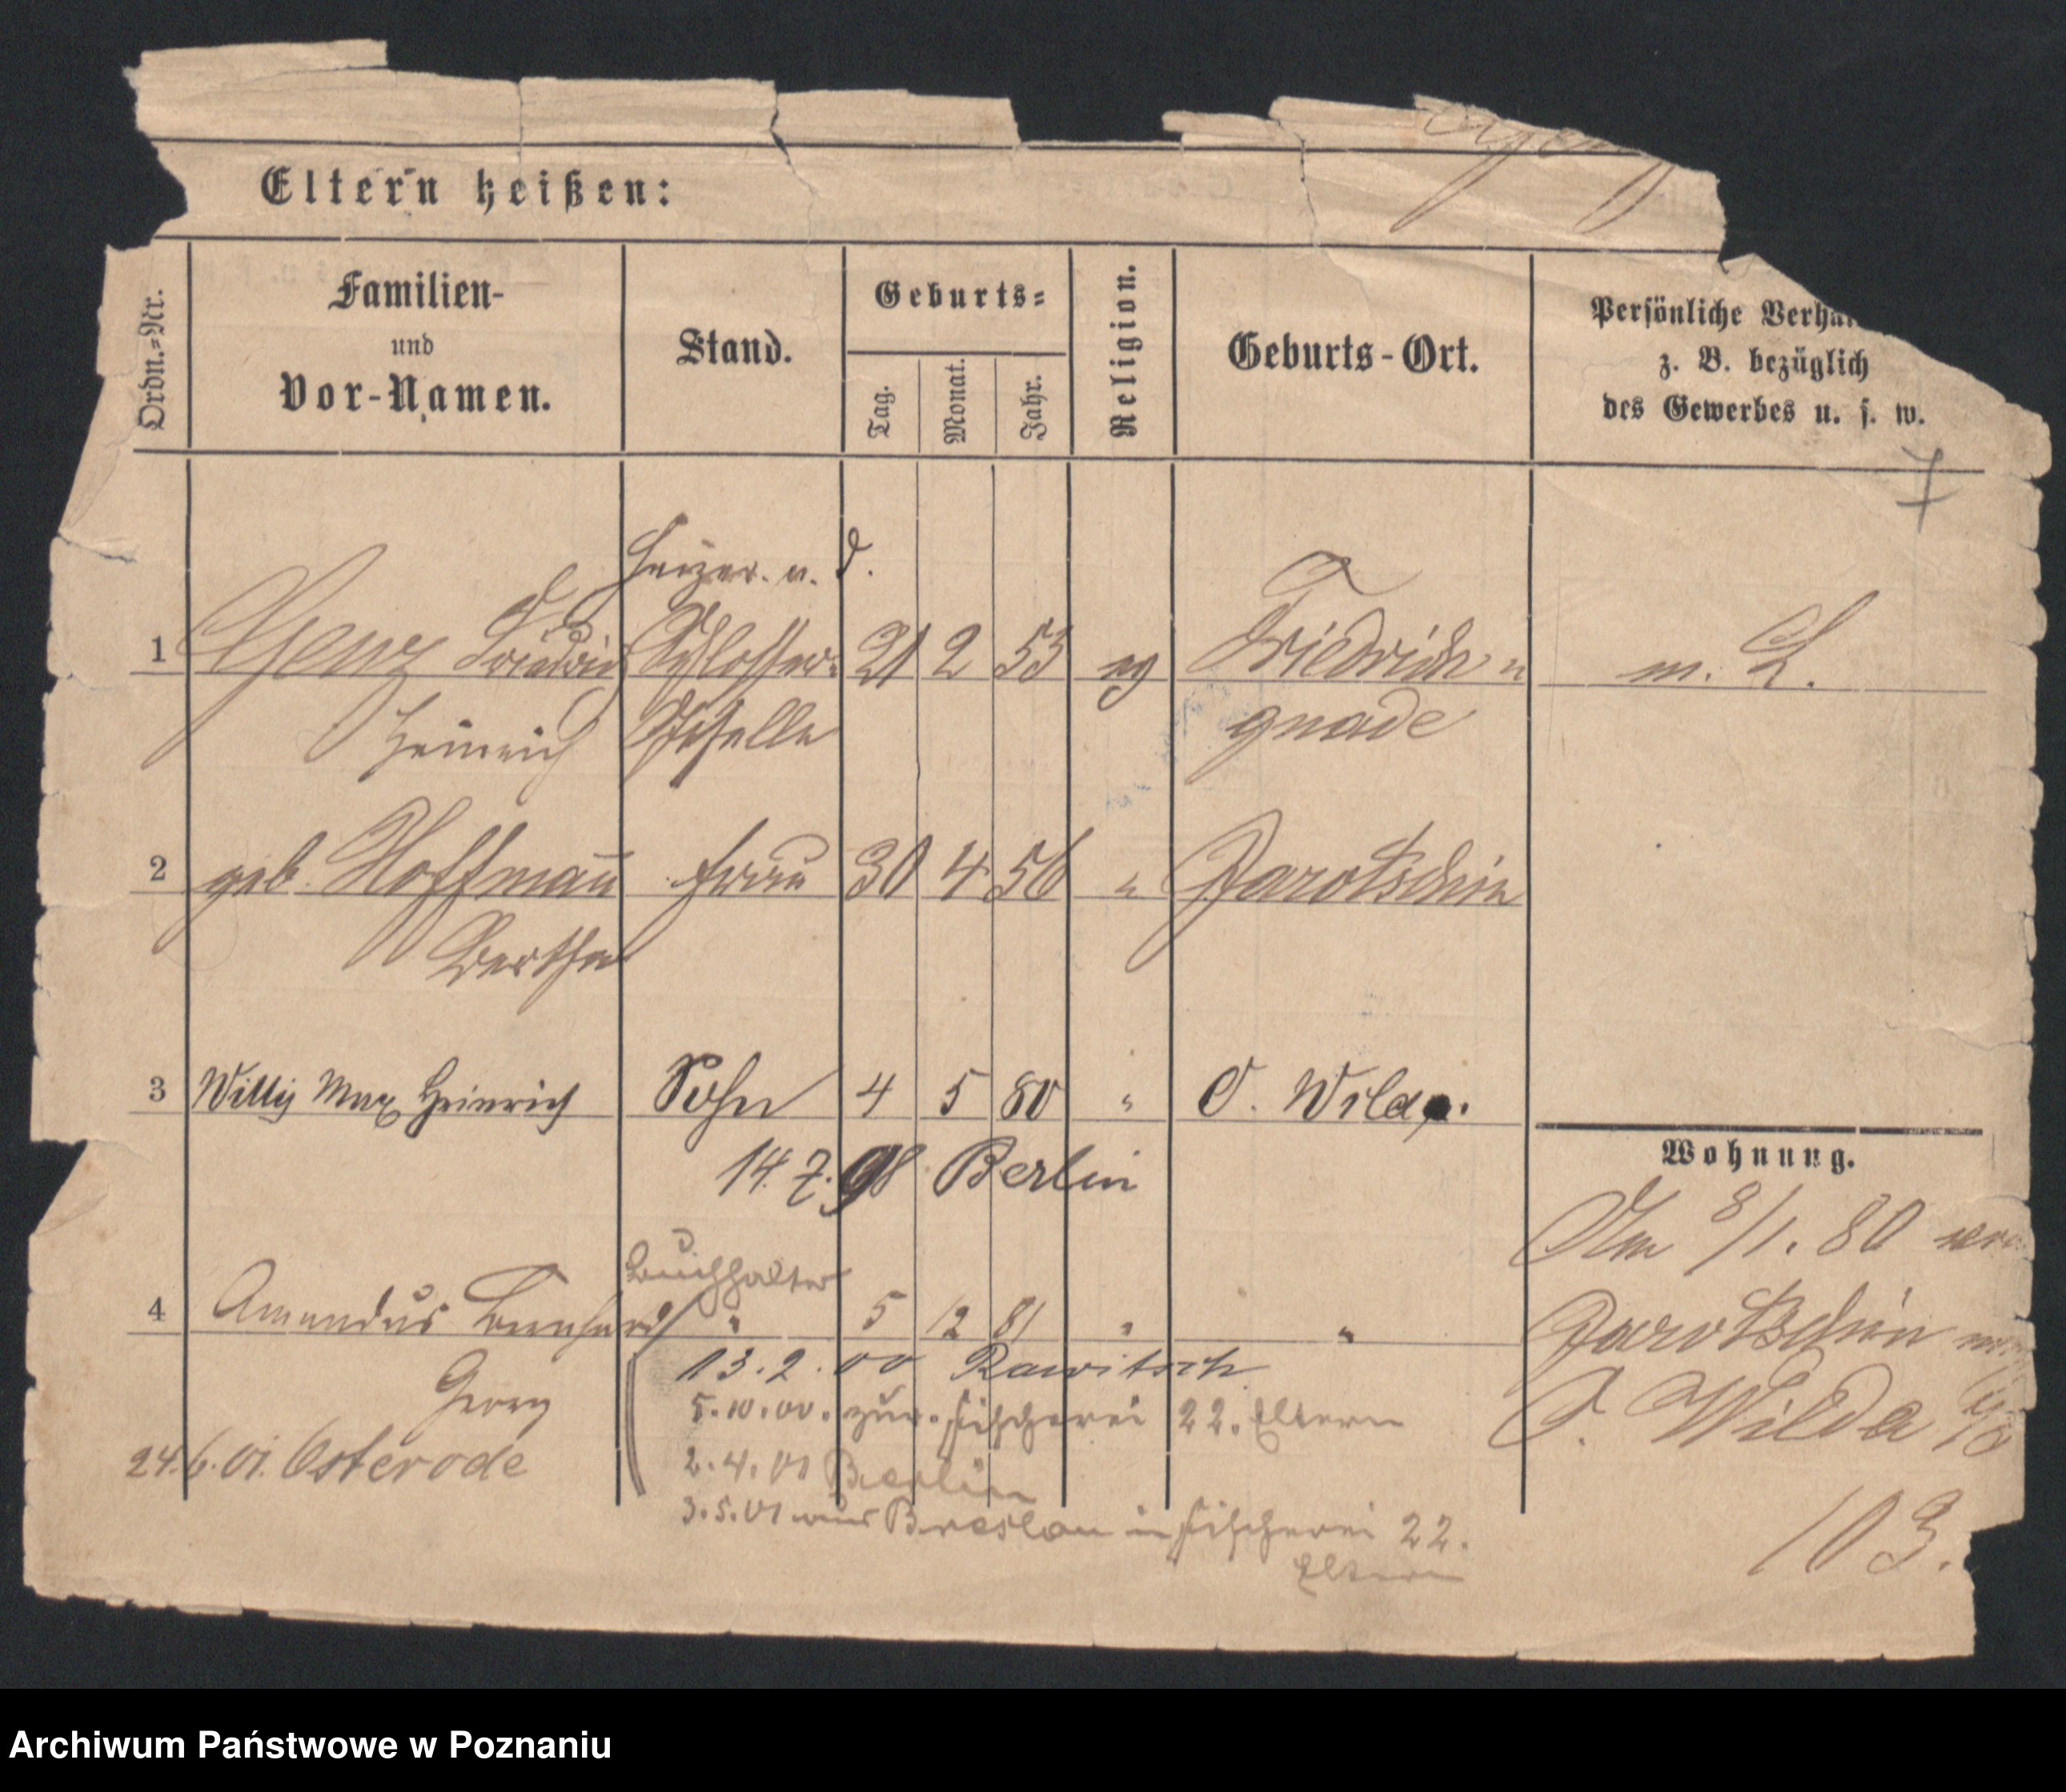 Eltern heißen:
Ordn.-Nr.
Familien-
und
Vor-Namen.
Stand.
Geburts-
Tag.
Monat.
Jahr.
Religion.
Geburts-Ort.
Persönliche
z. B. bezüglich
des Gewerbes u. s. w.
Heizer. u. d.
1 Genz Friedrich Schlosser- 21 2 53 eg Friedrich- m. L.
Heinrich Geselle gnade
2 geb. Hoffmann Frau 30 4 56 " Jarotschin
Bertha
3 Willy Max Heinrich Sohn 4 5 80 " O. Wilda.
14. 7. 98 Berlin
Wohnung.
Am 8/1. 80
Buchhalter
4 Amandus Bernhard " 5 12 81 " "
Jarotschin
Georg
13. 2. 00 Rawitsch
O. Wilda
5. 10. 00. zur. Fischerei 22. Eltern
24. 6. 01. Osterode
2. 4. 01 Berlin
3. 5. 01 aus Breslau in Fischerei 22.
Eltern
103.
Archiwum Państwowe w Poznaniu